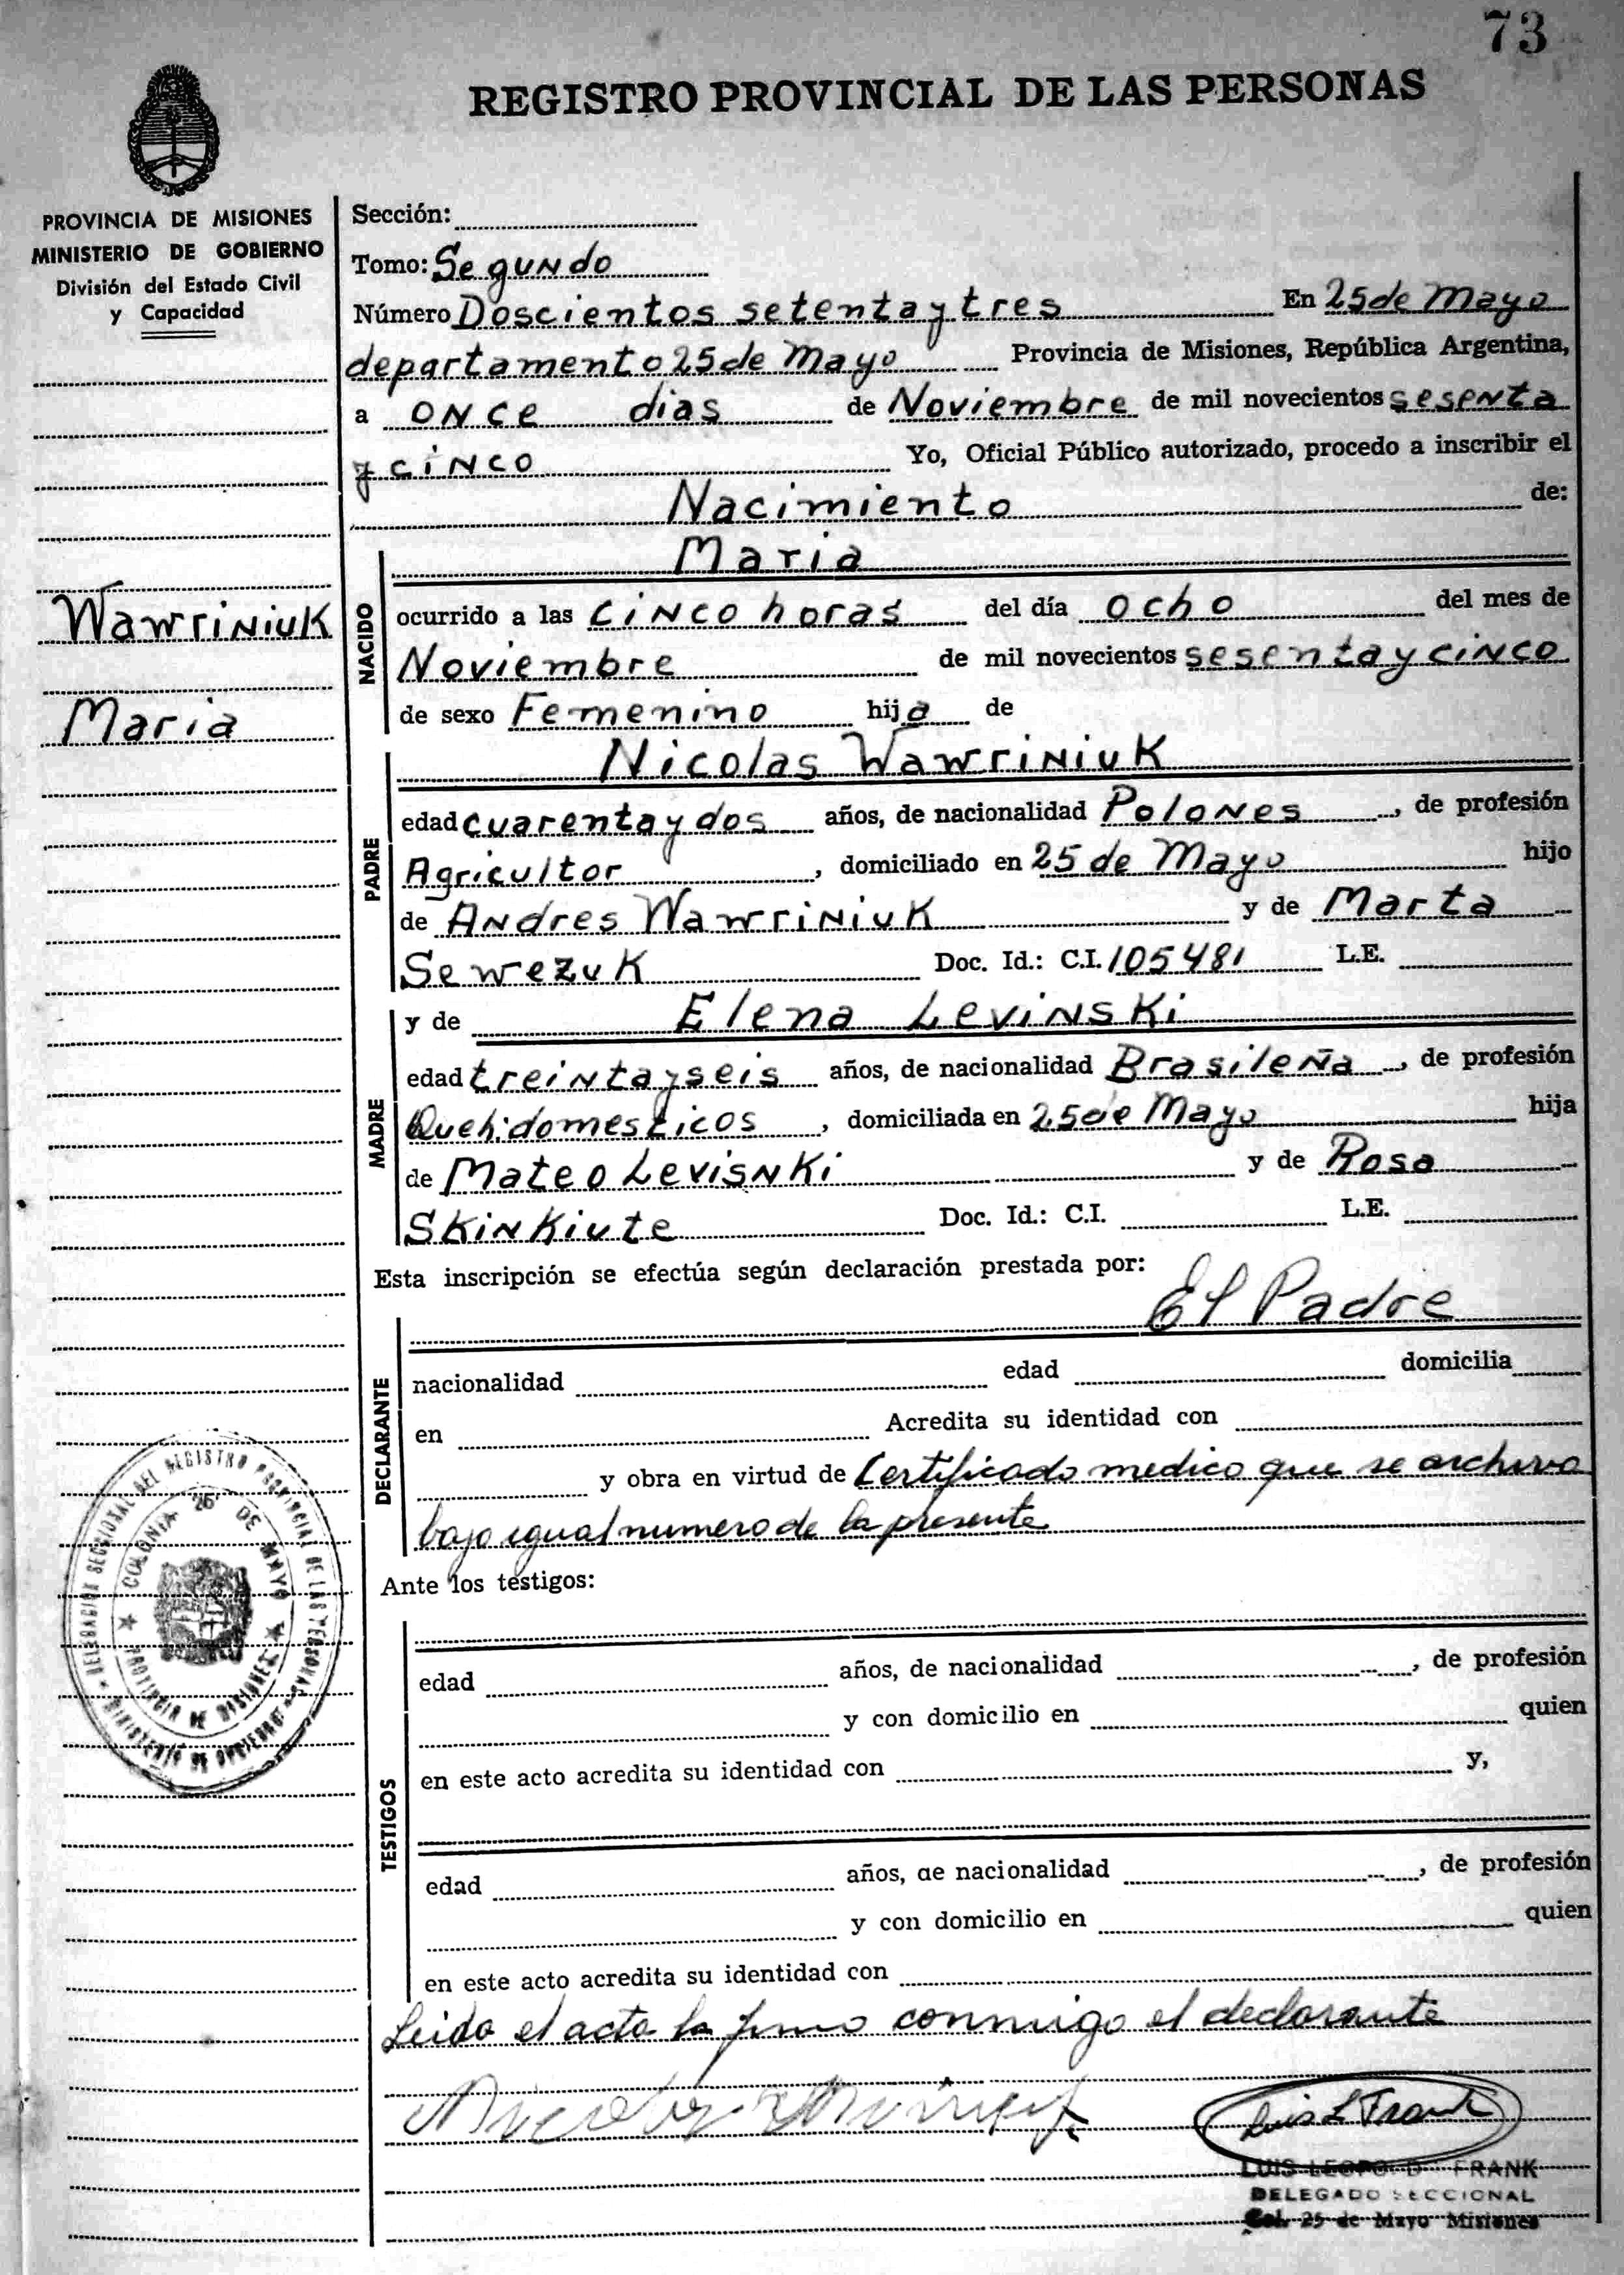 73
REGISTRO PROVINCIAL DE LAS PERSONAS
PROVINCIA DE MISIONES
MINISTERIO DE GOBIERNO
División del Estado Civil
y Capacidad
Wawriniuk
Maria
Sección:
Tomo: Segundo
Número Doscientos setenta y tres En 25 de Mayo
departamento 25 de Mayo Provincia de Misiones, República Argentina,
a once dias de Noviembre de mil novecientos sesenta
y cinco Yo, Oficial Público autorizado, procedo a inscribir el
Nacimiento de:
NACIDO
Maria
ocurrido a las cinco horas del día ocho del mes de
Noviembre de mil novecientos sesenta y cinco
de sexo Femenino hija de
PADRE
Nicolas Wawriniuk
edad cuarenta y dos años, de nacionalidad Polones, de profesión
Agricultor, domiciliado en 25 de Mayo hijo
de Andres Wawriniuk y de Marta
Sewezuk Doc. Id.: C.I. 105481 L.E.
MADRE
y de Elena Levinski
edad treinta y seis años, de nacionalidad Brasileña, de profesión
Queh. domesticos, domiciliada en 25 de Mayo hija
de Mateo Levisnki y de Rosa
Skinkiute Doc. Id.: C.I. L.E.
Esta inscripción se efectúa según declaración prestada por:
DECLARANTE
El Padre
nacionalidad edad domicilia
en Acredita su identidad con
y obra en virtud de Certificado medico que se archiva
bajo igual numero de la presente
Ante los testigos:
TESTIGOS
edad años, de nacionalidad , de profesión
y con domicilio en quien
en este acto acredita su identidad con y,
edad años, de nacionalidad , de profesión
y con domicilio en quien
en este acto acredita su identidad con
Leida el acta la firmo conmigo el declarante
Luis L Frank
LUIS LEOPO D FRANK
DELEGADO SECCIONAL
Col. 25 de Mayo Misiones
DELEGACION SECCIONAL DEL REGISTRO PROVINCIAL DE LAS PERSONAS
MINISTERIO DE GOBIERNO
COLONIA 25 DE MAYO
PROVINCIA DE MISIONES